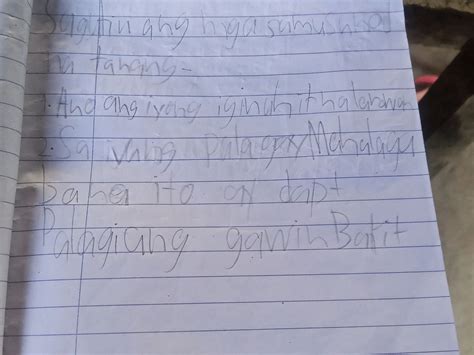 Sagutin ang mga sumusunod
na tanong-
1. Ano ang iyong iginuhit halarawan
2. Sa iyong palagay Mahalaga
ba na ito ay dapt
Palagiang gawin Bakit